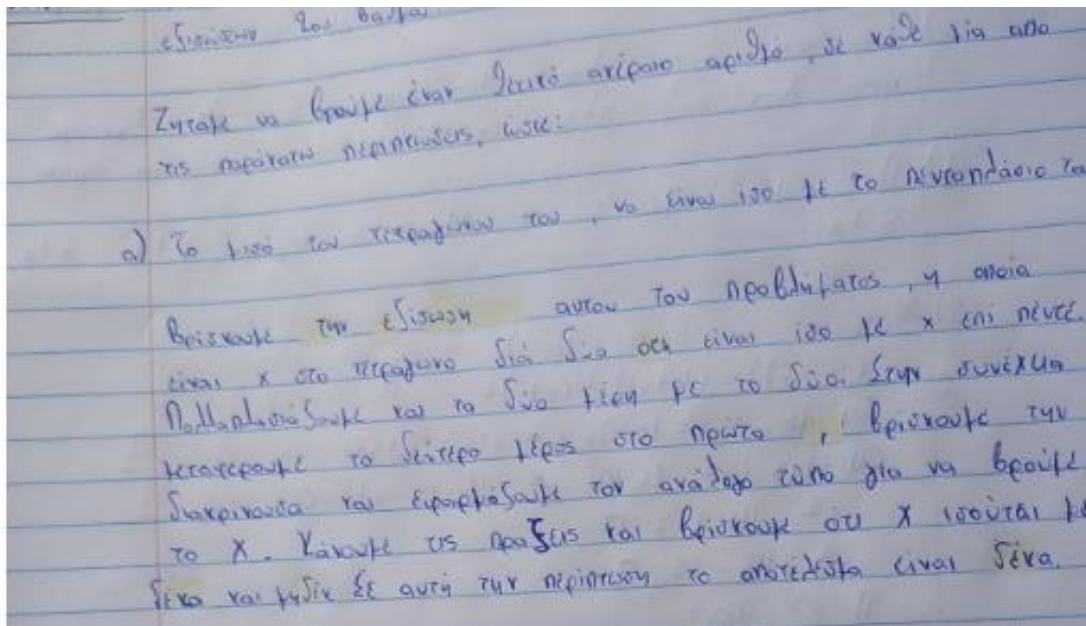 εξισώσεων 2ου βαθμού
Ζητάμε να βρούμε έναν θετικό ακέραιο αριθμό, σε κάθε μία απο
τις παρακάτω περιπτώσεις, ώστε:
α) Το μισό του τετραγώνου του, να είναι ισο με το πενταπλάσιο το
Βρίσκουμε την εξίσωση αυτου του προβλήματος, η οποία
είναι x στο τετράγωνο διά δύο οτι είναι ισο με x επι πέντε.
Πολλαπλασιάζουμε και τα δύο μέρη με το δύο. Στην συνέχεια
μεταφέρουμε το δεύτερο μέρος στο πρώτο, βρισκουμε την
διακρινουσα και εφαρμόζουμε τον ανάλογο τύπο για να βρούμε
το x. Κάνουμε τις πραξεις και βρισκουμε οτι x ισούται με
δεκα και μηδεν Σε αυτή την περίπτωση το αποτέλεσμα είναι δέκα.